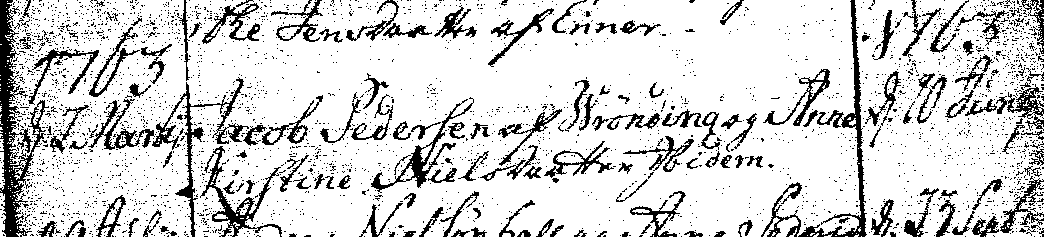 ke Jensdaatter af Enner.
1763 1763.
d. 2 Martij Jacob Pedersen af Wrönding og Anne d. 10 Junij
Kirstine Nielsdaatter Ibidem.
Anne d. 23 Sept